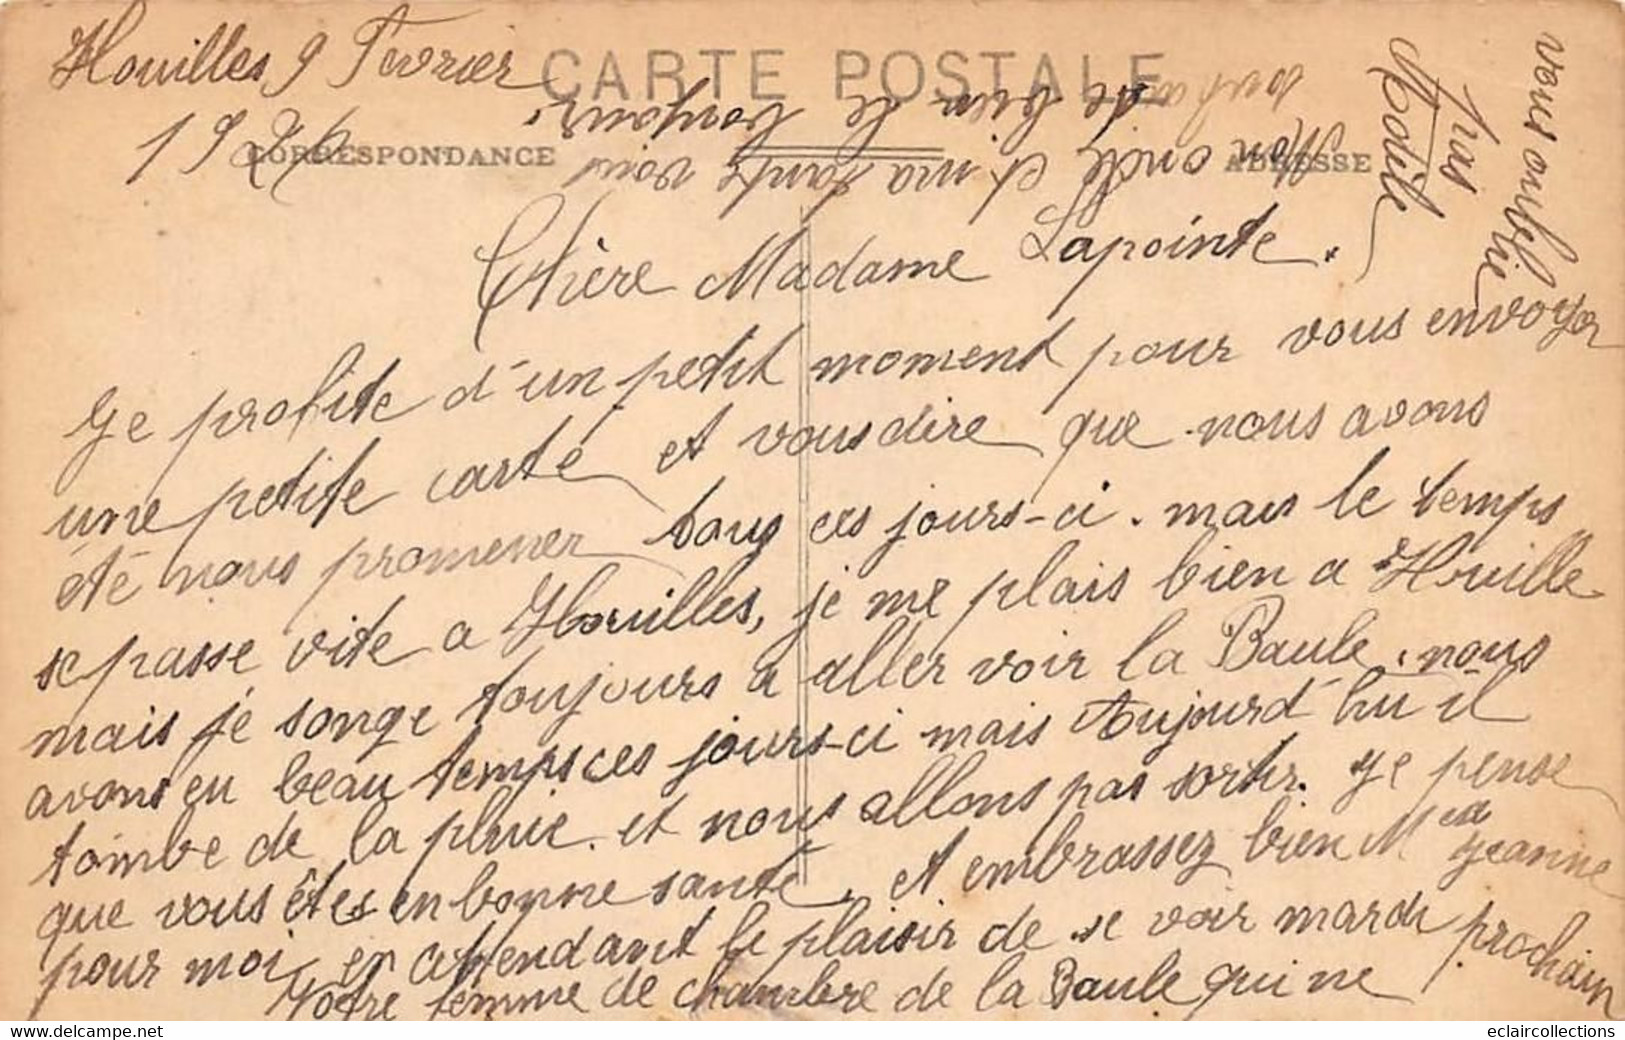 Houilles 9 Fevrier
CARTE POSTALE
19
CORRESPONDANCE
ADRESSE
Chère Madame Lapointe.
Je profite d'un petit moment pour vous envoyer
une petite carte et vous dire que nous avons
été nous promener tous ces jours-ci. mais le temps
se passe vite a Houilles, je me plais bien a Houille
mais je songe toujours a aller voir la Baule. nous
avons eu beau temps ces jours-ci mais Aujourd'hui il
tombe de la pluie. et nous allons pas sortir. Je pense
que vous êtes en bonne santé. et embrassez bien Jeanne
pour moi en attendant le plaisir de se voir mardi prochain
Votre femme de chambre de la Baule qui ne
vous oublie
pas
Odile
Mon oncle et ma tante vous
de bien le bonjour.
eclaircollections